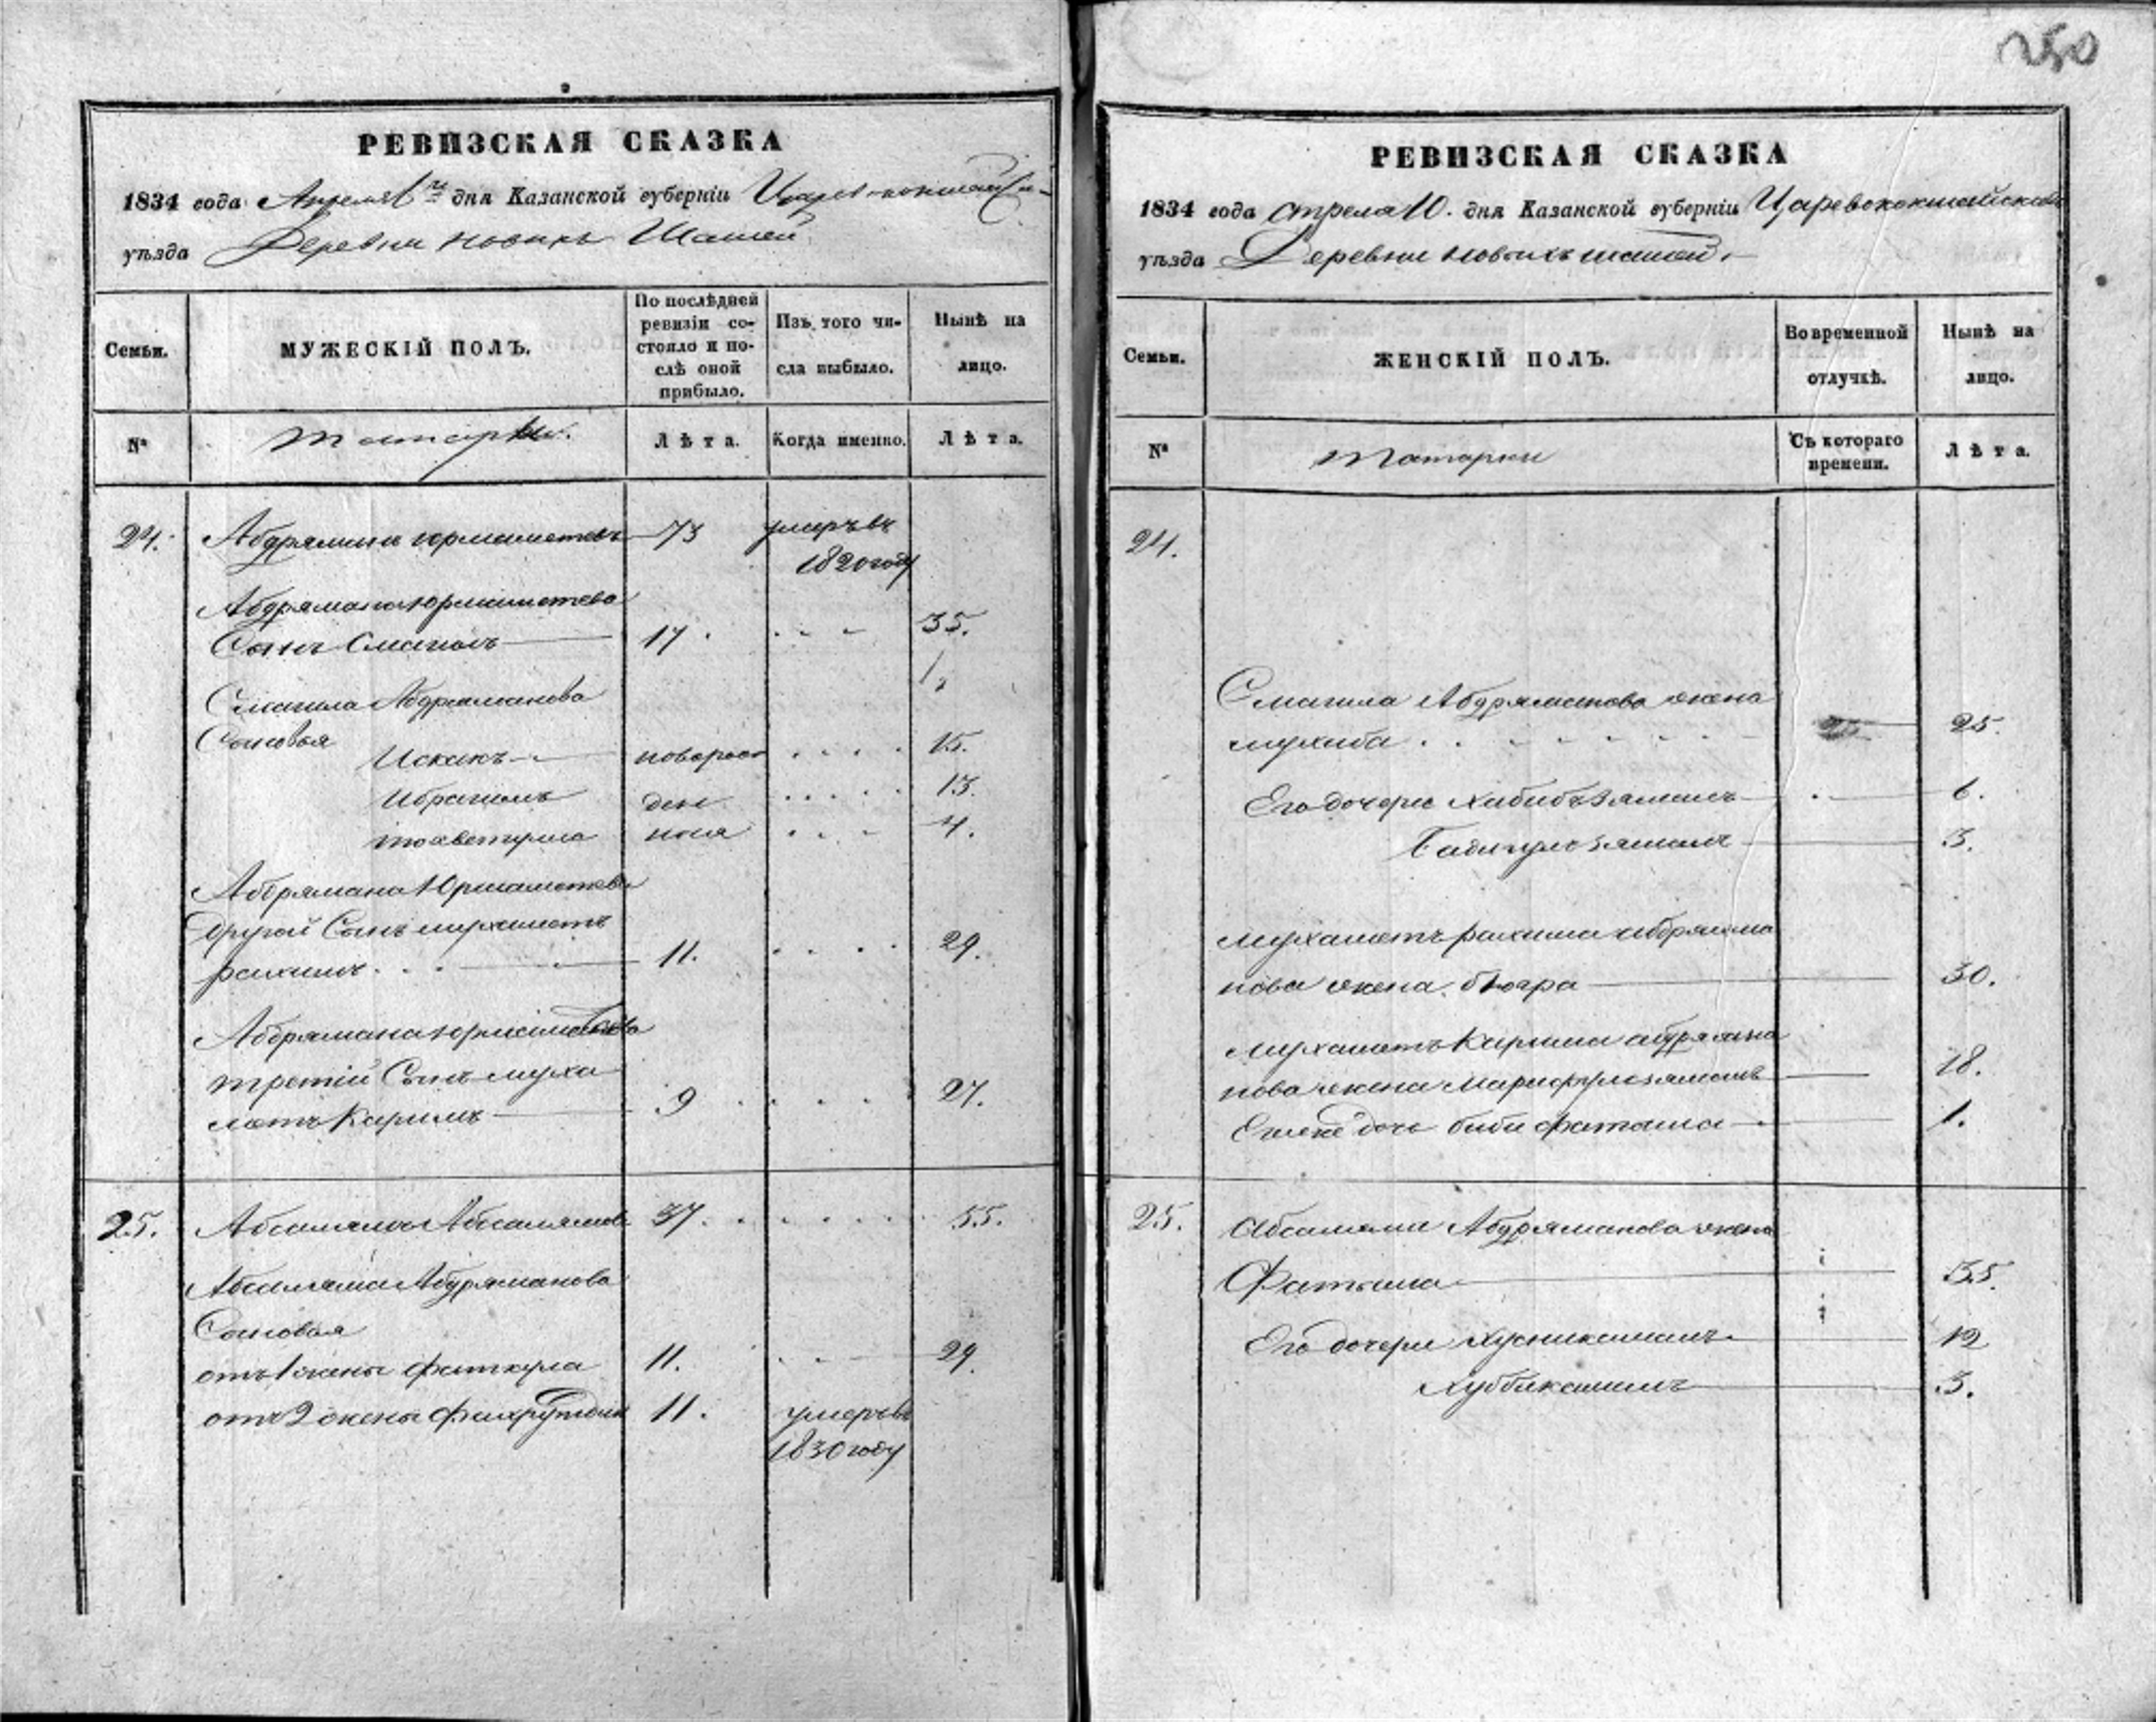 250
РЕВИЗСКАЯ СКАЗКА
1834 года Апреля дня Казанской губерніи
уѣзда Деревни новыхъ Шашей
Семьи.
МУЖЕСКІЙ ПОЛЪ.
По послѣдней ревизіи со-
стояло и по-
слѣ оной
прибыло.
Изъ того чи-
сла выбыло.
Ныне на
лицо.
№
Лѣта.
Когда именно.
Лѣта.
24. Абдрямана Юрмаметевъ 73 умеръ въ
1820 году
Абдрямана Юрмаметева
Сынъ Смагилъ 17. 35.
Смагила Абдряманова
Сыновья
Исхакъ новорож 15.
Ибрагимъ ден 13.
ноя 4.
Абдрямана Юрмаметева
Другой Сынъ мухаметь
рахимъ 11. 29.
Абдрямана Юрмаметева
третій Сынъ муха
меть Каримъ 9 27.
25. Абсалямъ 37. 55.
Абсаляма Абдряманова
Сыновья
отъ 1 жены фаткула 11. 29.
отъ 2 жены Фахрутдин 11. умеръ въ
1830 году
РЕВИЗСКАЯ СКАЗКА
1834 года апреля 10. дня Казанской губерніи Царевококшайскаго
уѣзда Деревни новыхъ шашей.
Семьи.
ЖЕНСКІЙ ПОЛЪ.
Во временной
отлучкѣ.
Нынѣ на
лицо.
№
Татарки
Съ котораго
времени.
Лѣта.
24.
Смагила Абдряманова жена
мухиба 25.
Его дочери Хабибъзямалъ 6.
3.
Мухаметь рахима абдряма
нова жена 30.
Мухаметь Карима абдряма
нова жена 18.
дочь биби фатыма 1.
25. Абсаляма Абдряманова жена
Фатыма 55.
Его дочери 12
3.